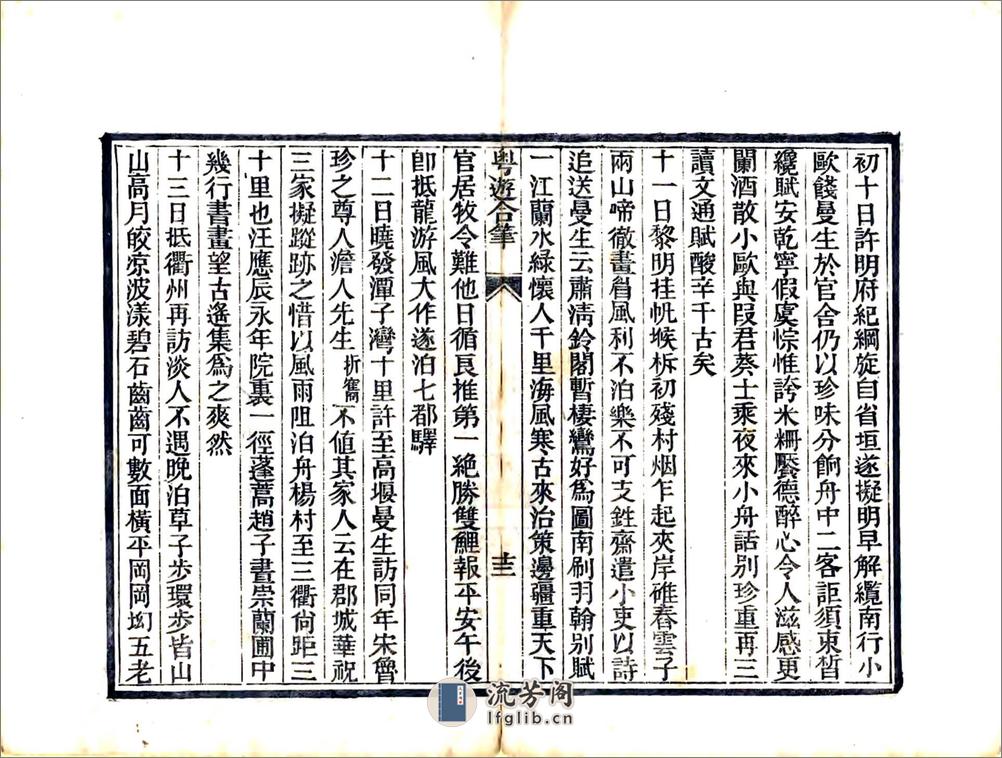 初十日許明府紀綱旋自省垣遂擬明早解纜南行小
歐餞曼生於官舍仍以珍味分餉舟中二客詎須束晳
纔賦安乾寧假虞悰惟誇米粣饜德醉心令人滋感更
闌酒散小歐與段君葵士乘夜來小舟話別珍重再三
讀文通賦酸辛千古矣
十一日黎明挂帆堠柝初殘村烟乍起夾岸碓舂雲子
兩山啼徹畫眉風利不泊樂不可支甡齋遣小吏以詩
追送曼生云肅淸鈴閣暫棲鸞好爲圖南刷羽翰別賦
一江蘭水綠懷人千里海風寒古來治策邊疆重天下
粵遊合筆
十三
官居牧令難他日循良推第一絶勝雙鯉報平安午後
卽抵龍游風大作遂泊七都驛
十二日曉發潭子灣十里許至高堰曼生訪同年宋魯
珍之尊人澹人先生折舊不值其家人云在郡城華祝
三家擬蹤跡之惜以風雨阻泊舟楊村至三衢尙距三
十里也汪應辰永年院裏一徑蓬蒿趙子晝崇蘭圃中
幾行書畫望古遙集爲之爽然
十三日抵衢州再訪淡人不遇晚泊草子步環步皆山
山高月皎凉波漾碧石齒齒可數面橫平岡岡坳五老
流芳阁
lfglib.cn